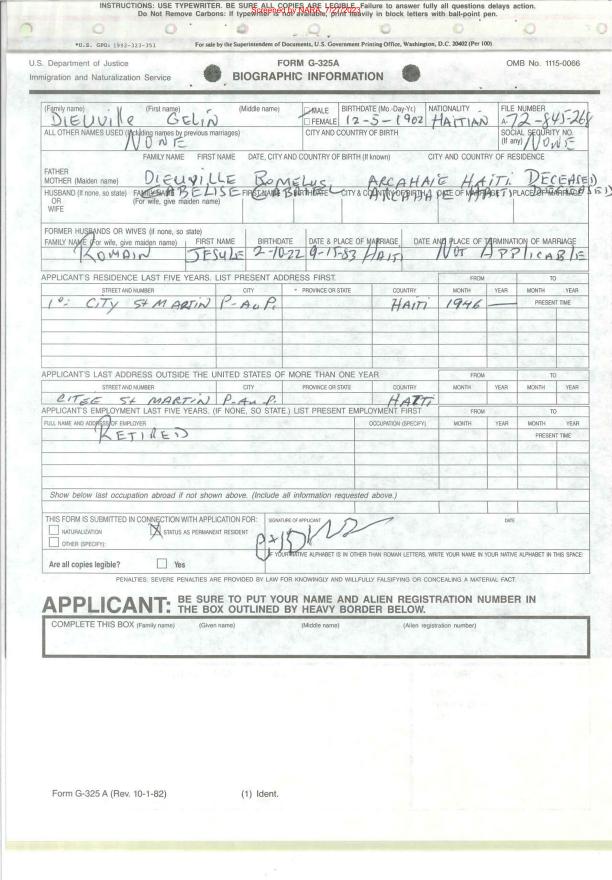 INSTRUCTIONS: USE TYPEWRITER. BE SURE ALL COPIES ARE LEGIBLE. Failure to answer fully all questions delays action.
Do Not Remove Carbons: If typewriter is not available, print heavily in block letters with ball-point pen.
Screened by NARA, 7/27/2023
*U.S. GPO: 1992-323-351 For sale by the Superintendent of Documents, U.S. Government Printing Office, Washington, D.C. 20402 (Per 100)
U.S. Department of Justice FORM G-325A OMB No. 1115-0066
Immigration and Naturalization Service BIOGRAPHIC INFORMATION
(Family name) (First name) (Middle name) MALE BIRTHDATE (Mo.-Day-Yr.) NATIONALITY FILE NUMBER
DIEUVILLE GELIN FEMALE 12-5-1902 HAITIAN A-72-845-268
ALL OTHER NAMES USED (Including names by previous marriages) CITY AND COUNTRY OF BIRTH SOCIAL SECURITY NO.
NONE (If any) NONE
FAMILY NAME FIRST NAME DATE, CITY AND COUNTRY OF BIRTH (If known) CITY AND COUNTRY OF RESIDENCE
FATHER DIEUVILLE ROMELUS ARCAHAIE HAITI DECEASED
MOTHER (Maiden name) ABELISE ARCAHAIE HAITI DECEASED
HUSBAND (If none, so state) FAMILY NAME FIRST NAME BIRTHDATE CITY & COUNTRY OF BIRTH DATE OF MARRIAGE PLACE OF MARRIAGE
OR (For wife, give maiden name)
WIFE
FORMER HUSBANDS OR WIVES (if none, so state)
FAMILY NAME (For wife, give maiden name) FIRST NAME BIRTHDATE DATE & PLACE OF MARRIAGE DATE AND PLACE OF TERMINATION OF MARRIAGE
ROMAIN JESULE 2-10-22 9-15-53 HAITI NOT APPLICABLE
APPLICANT'S RESIDENCE LAST FIVE YEARS. LIST PRESENT ADDRESS FIRST. FROM TO
STREET AND NUMBER CITY PROVINCE OR STATE COUNTRY MONTH YEAR MONTH YEAR
CITY ST MARTIN P-AU P. HAITI 1946 PRESENT TIME
APPLICANT'S LAST ADDRESS OUTSIDE THE UNITED STATES OF MORE THAN ONE YEAR FROM TO
STREET AND NUMBER CITY PROVINCE OR STATE COUNTRY MONTH YEAR MONTH YEAR
CITEE ST MARTIN P-AU P. HAITI
APPLICANT'S EMPLOYMENT LAST FIVE YEARS. (IF NONE, SO STATE.) LIST PRESENT EMPLOYMENT FIRST FROM TO
FULL NAME AND ADDRESS OF EMPLOYER OCCUPATION (SPECIFY) MONTH YEAR MONTH YEAR
RETIRED PRESENT TIME
Show below last occupation abroad if not shown above. (Include all information requested above.)
THIS FORM IS SUBMITTED IN CONNECTION WITH APPLICATION FOR: SIGNATURE OF APPLICANT DATE
NATURALIZATION X STATUS AS PERMANENT RESIDENT
OTHER (SPECIFY):
IF YOUR NATIVE ALPHABET IS IN OTHER THAN ROMAN LETTERS, WRITE YOUR NAME IN YOUR NATIVE ALPHABET IN THIS SPACE:
Are all copies legible? Yes
PENALTIES: SEVERE PENALTIES ARE PROVIDED BY LAW FOR KNOWINGLY AND WILLFULLY FALSIFYING OR CONCEALING A MATERIAL FACT.
APPLICANT: BE SURE TO PUT YOUR NAME AND ALIEN REGISTRATION NUMBER IN
THE BOX OUTLINED BY HEAVY BORDER BELOW.
COMPLETE THIS BOX (Family name) (Given name) (Middle name) (Alien registration number)
Form G-325 A (Rev. 10-1-82) (1) Ident.